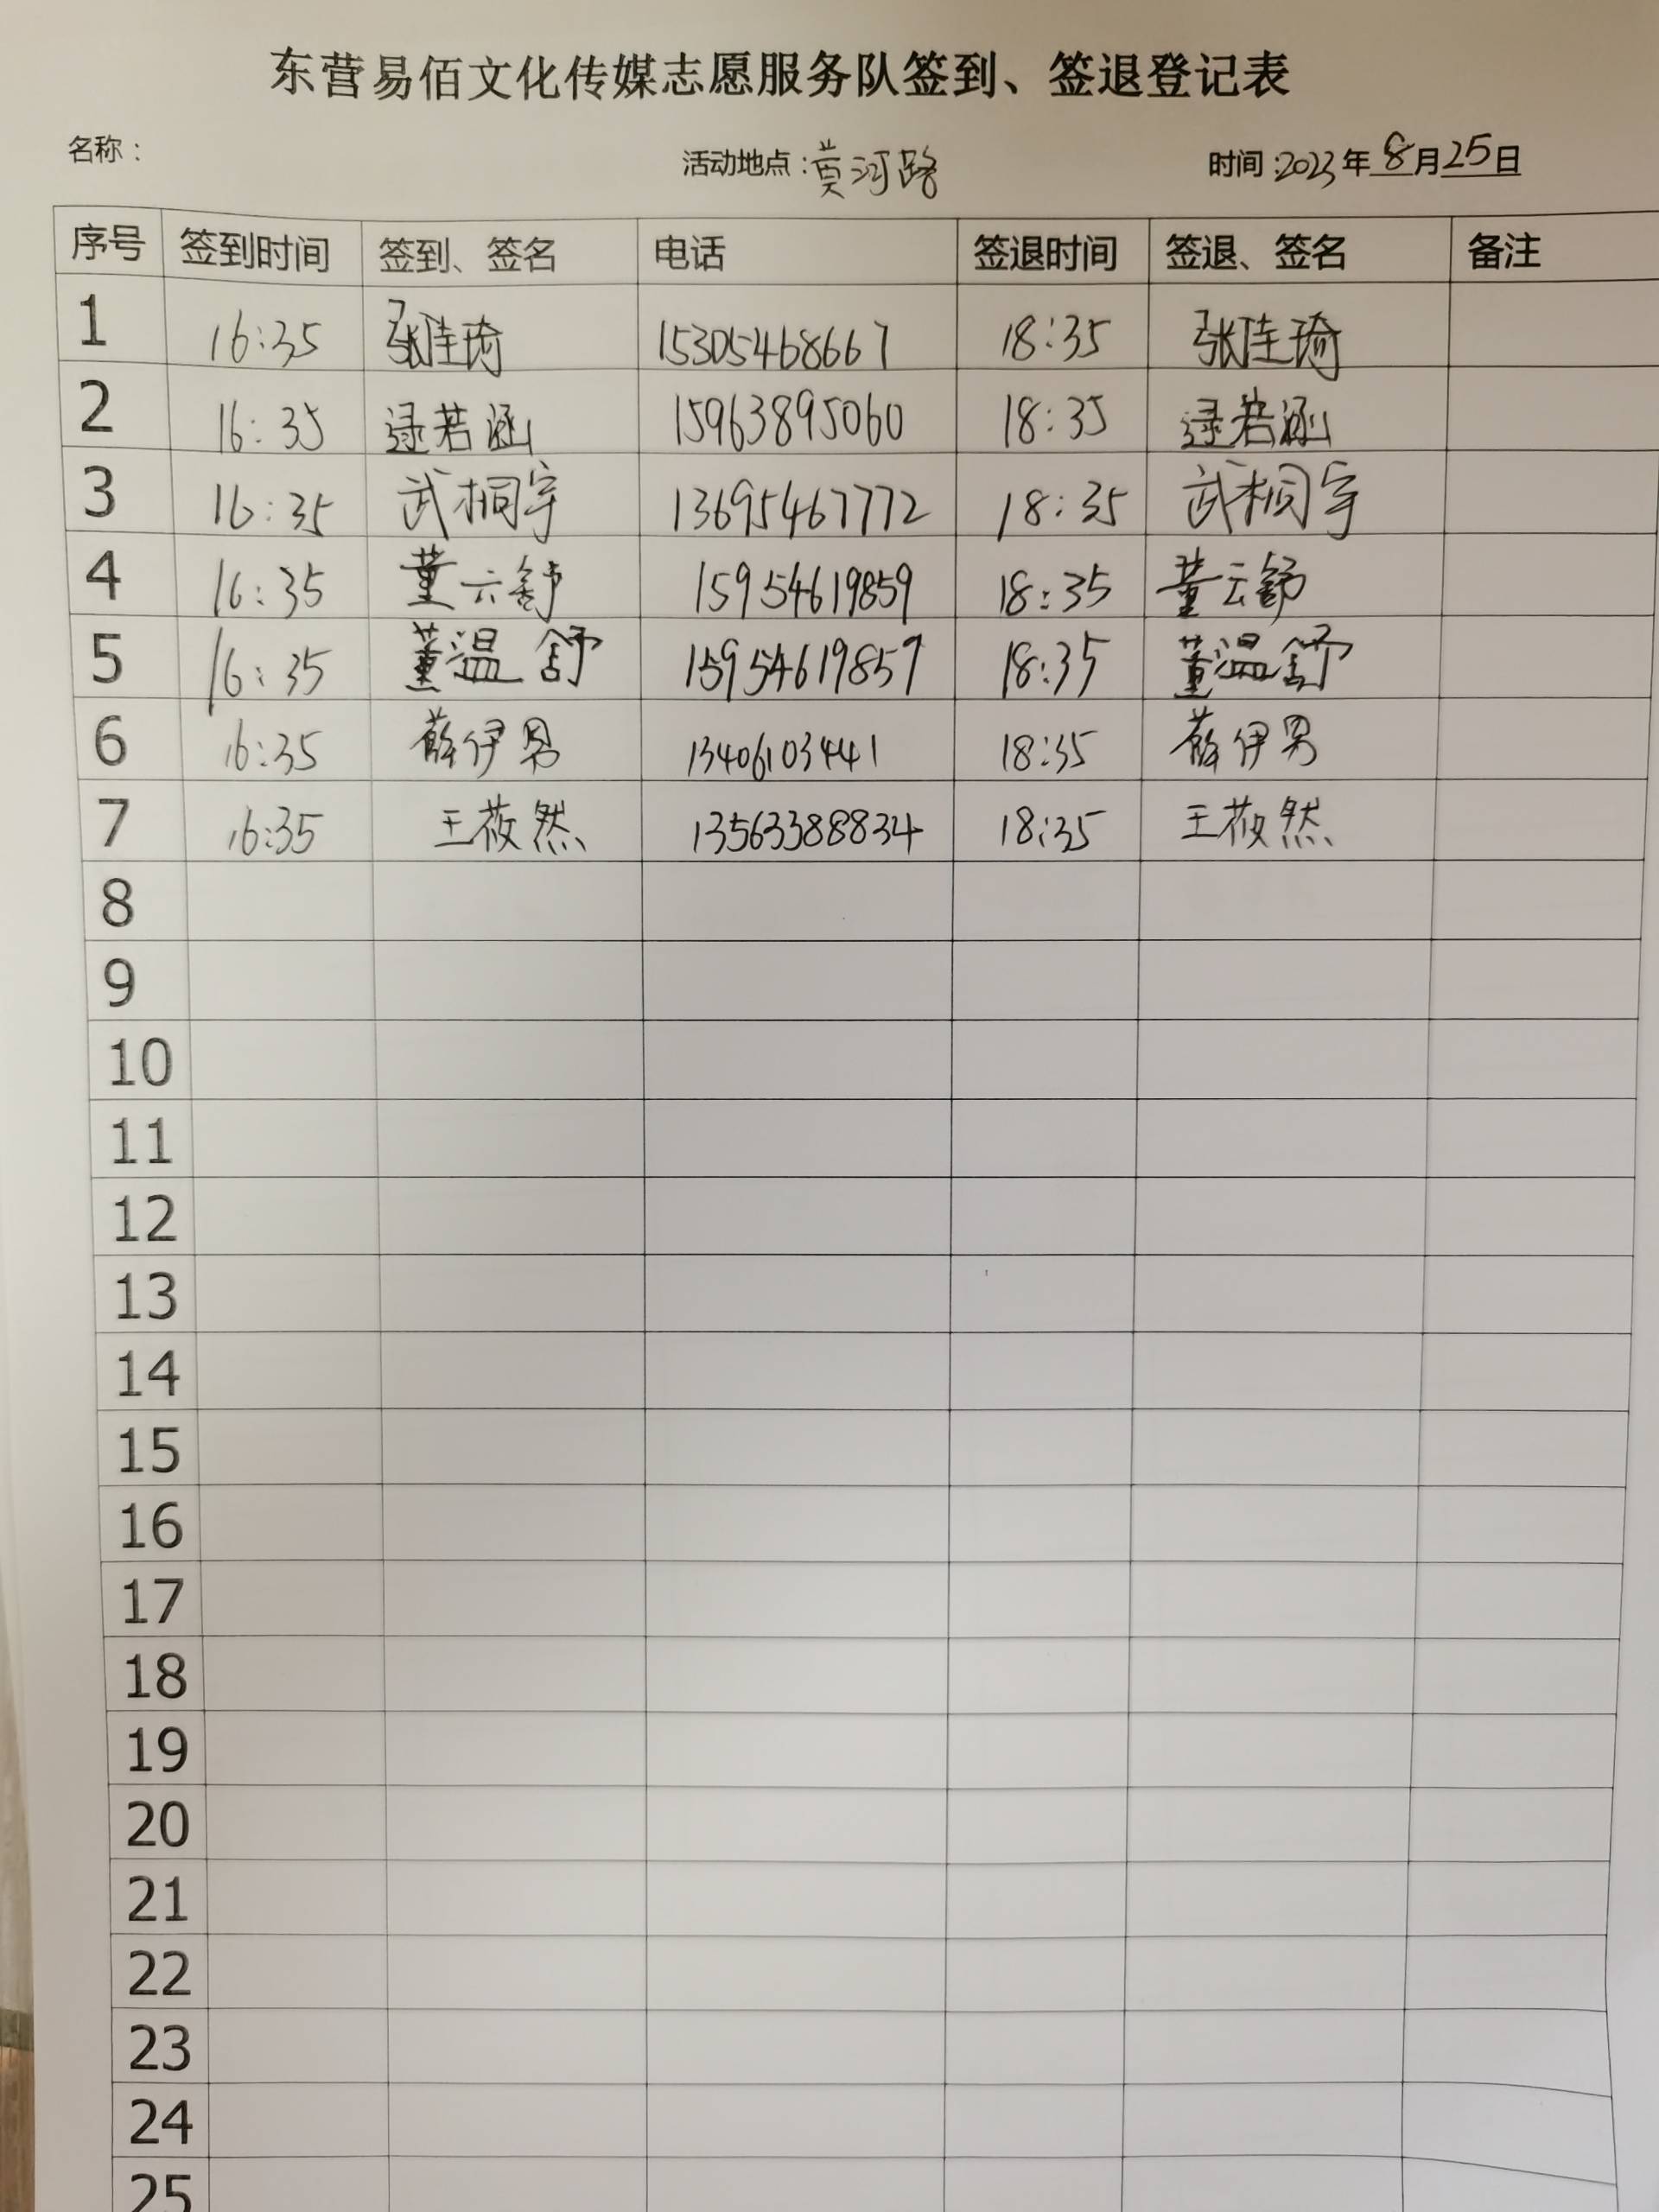 东营易佰文化传媒志愿服务队签到、签退登记表
名称： 活动地点：黄河路 时间：2023年8月25日
序号 签到时间 签到、签名 电话 签退时间 签退、签名 备注
1 16:35 张佳琦 15305468667 18:35 张佳琦
2 16:35 逯若涵 15963895060 18:35 逯若涵
3 16:35 武桐宇 13695467772 18:35 武桐宇
4 16:35 董云舒 15954619859 18:35 董云舒
5 16:35 董温舒 15954619859 18:35 董温舒
6 16:35 薛伊男 13406103441 18:35 薛伊男
7 16:35 王莜然 13563388834 18:35 王莜然
8
9
10
11
12
13
14
15
16
17
18
19
20
21
22
23
24
25